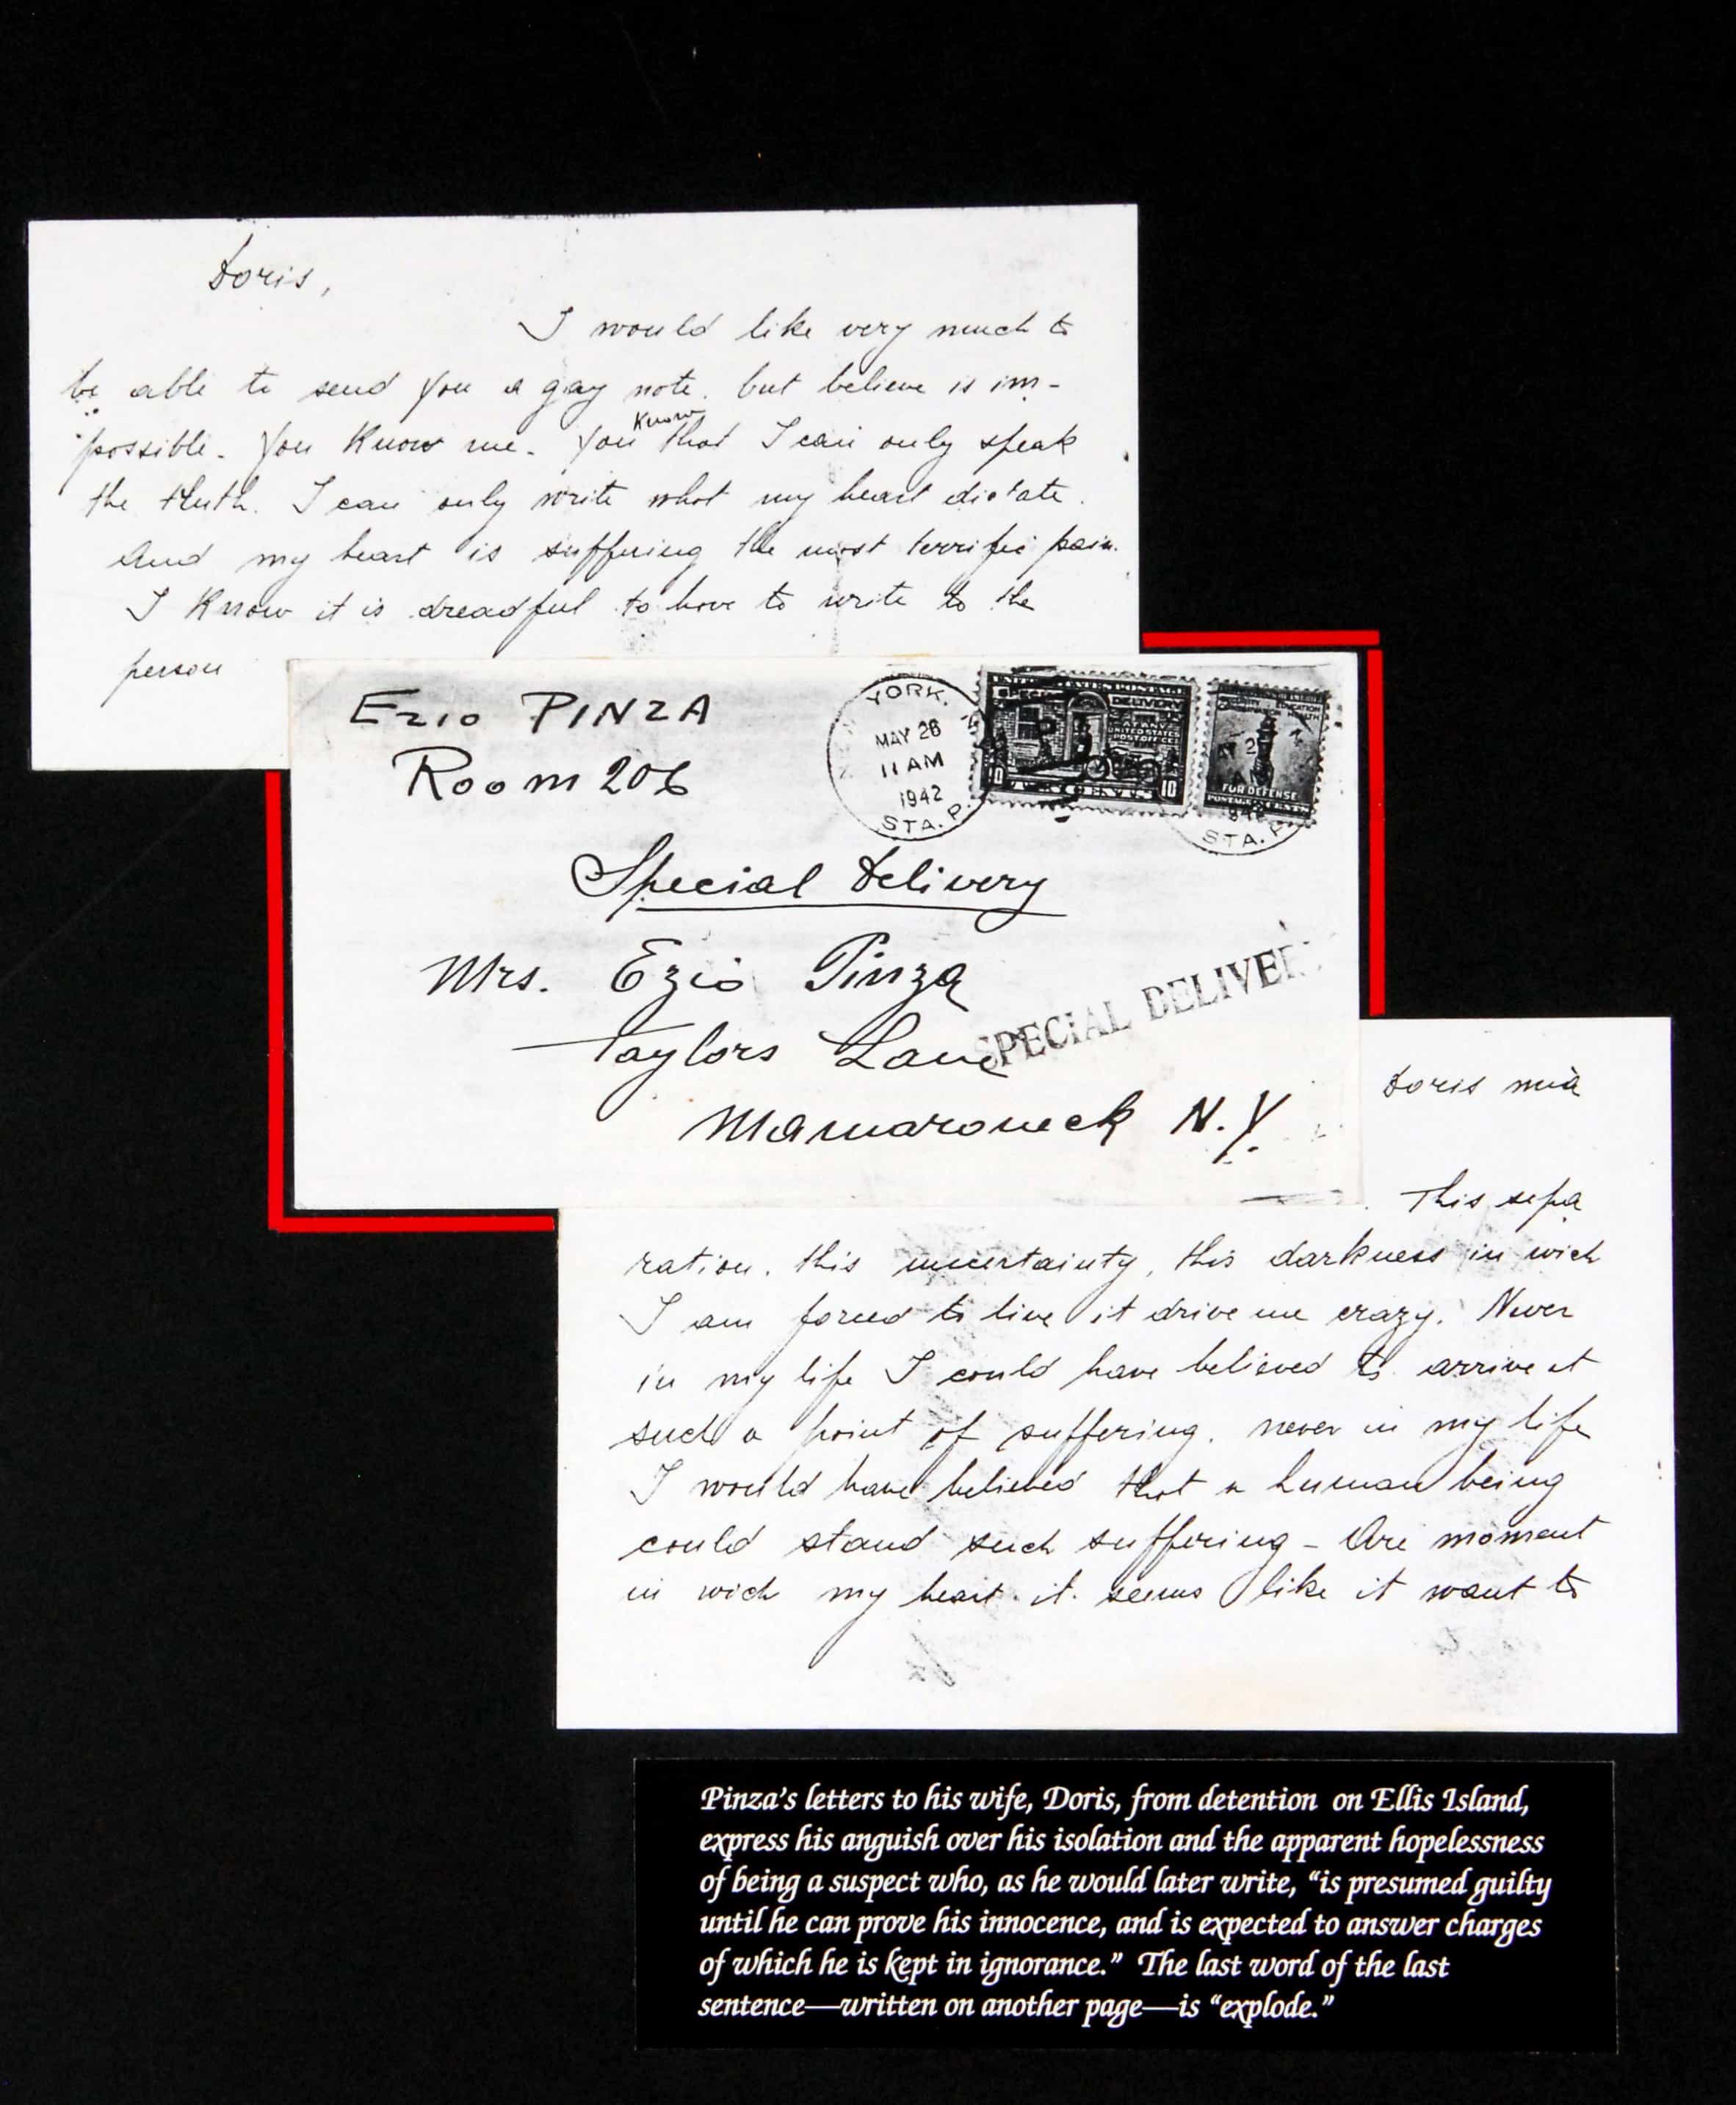 Doris,
I would like very much to
be able to send you a gay note. but believe is im-
possible. You Know me. You Know that I can only speak
the thuth. I can only write what my heart dictate.
And my heart is suffering the most terrific pain.
I Know it is dreadful to have to write to the
person
Ezio PINZA
Room 206
NEW YORK, N.
MAY 28
11 AM
1942
STA. P.
UNITED STATES POSTAGE
SPECIAL DELIVERY
AT ANY
UNITED STATES
POST OFFICE
10 TEN CENTS 10
EDUCATION
HEALTH
FOR DEFENSE
POSTAGE CENTS
STA. P.
Special Delivery
Mrs. Ezio Pinza
Taylors Lane
Mamaroneck N.Y.
SPECIAL DELIVER
Doris mia
This sepa
ration. this uncertainty, this darkness in wich
I am forced to live it drive me crazy. Never
in my life I could have believed to arrive at
such a point of suffering. never in my life
I would have believed that a human being
could stand such suffering - Are moment
in wich my heart it seems like it want to
Pinza's letters to his wife, Doris, from detention on Ellis Island,
express his anguish over his isolation and the apparent hopelessness
of being a suspect who, as he would later write, “is presumed guilty
until he can prove his innocence, and is expected to answer charges
of which he is kept in ignorance.” The last word of the last
sentence—written on another page—is “explode.”